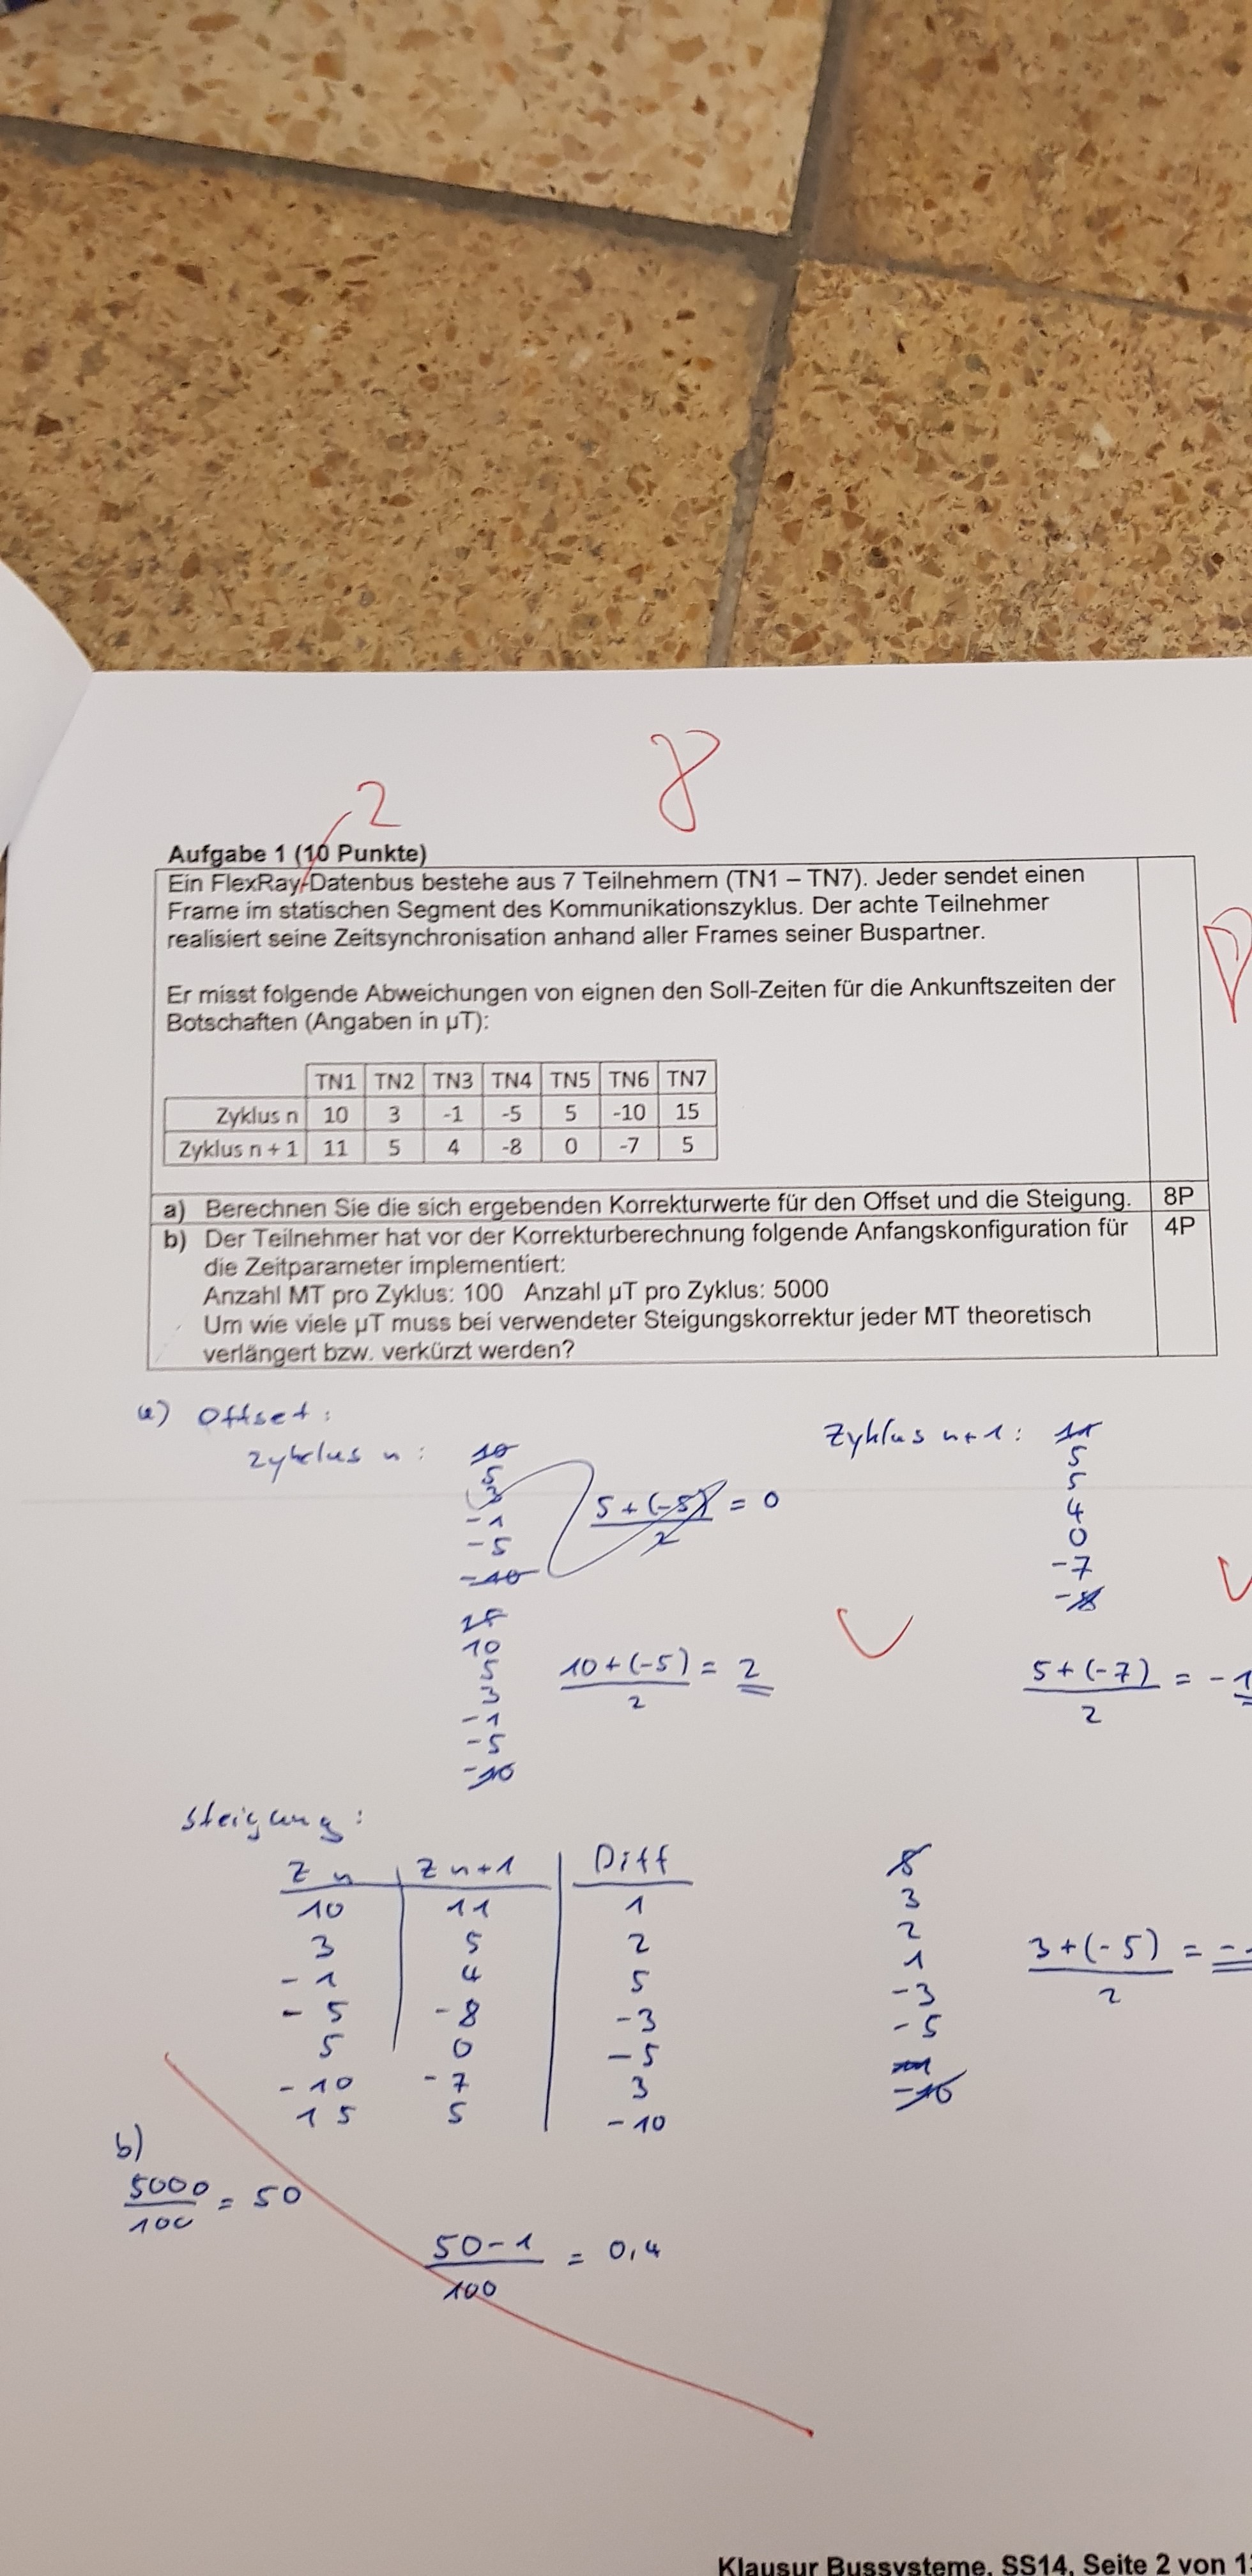 2
8
Aufgabe 1 (10 Punkte)
Ein FlexRay-Datenbus bestehe aus 7 Teilnehmern (TN1 – TN7). Jeder sendet einen
Frame im statischen Segment des Kommunikationszyklus. Der achte Teilnehmer
realisiert seine Zeitsynchronisation anhand aller Frames seiner Buspartner.
Er misst folgende Abweichungen von eignen den Soll-Zeiten für die Ankunftszeiten der
Botschaften (Angaben in µT):
TN1 TN2 TN3 TN4 TN5 TN6 TN7
Zyklus n 10 3 -1 -5 5 -10 15
Zyklus n + 1 11 5 4 -8 0 -7 5
a) Berechnen Sie die sich ergebenden Korrekturwerte für den Offset und die Steigung. 8P
b) Der Teilnehmer hat vor der Korrekturberechnung folgende Anfangskonfiguration für 4P
die Zeitparameter implementiert:
Anzahl MT pro Zyklus: 100 Anzahl µT pro Zyklus: 5000
Um wie viele µT muss bei verwendeter Steigungskorrektur jeder MT theoretisch
verlängert bzw. verkürzt werden?
a) Offset:
Zyklus n:
10
5
3
-1
-5
-10
5+(-5)
2
= 0
15
10
5
3
-1
-5
-10
10+(-5) = 2
2
Zyklus n+1:
11
5
5
4
0
-7
-8
5+(-7) = -1
2
Steigung:
Z n Z n+1 Diff
10 11 1
3 5 2
-1 4 5
-5 -8 -3
5 0 -5
-10 -7 3
15 5 -10
5
3
2
1
-3
-5
-10
3+(-5) =
2
b)
5000 = 50
100
50-1 = 0,4
100
Klausur Bussysteme, SS14, Seite 2 von